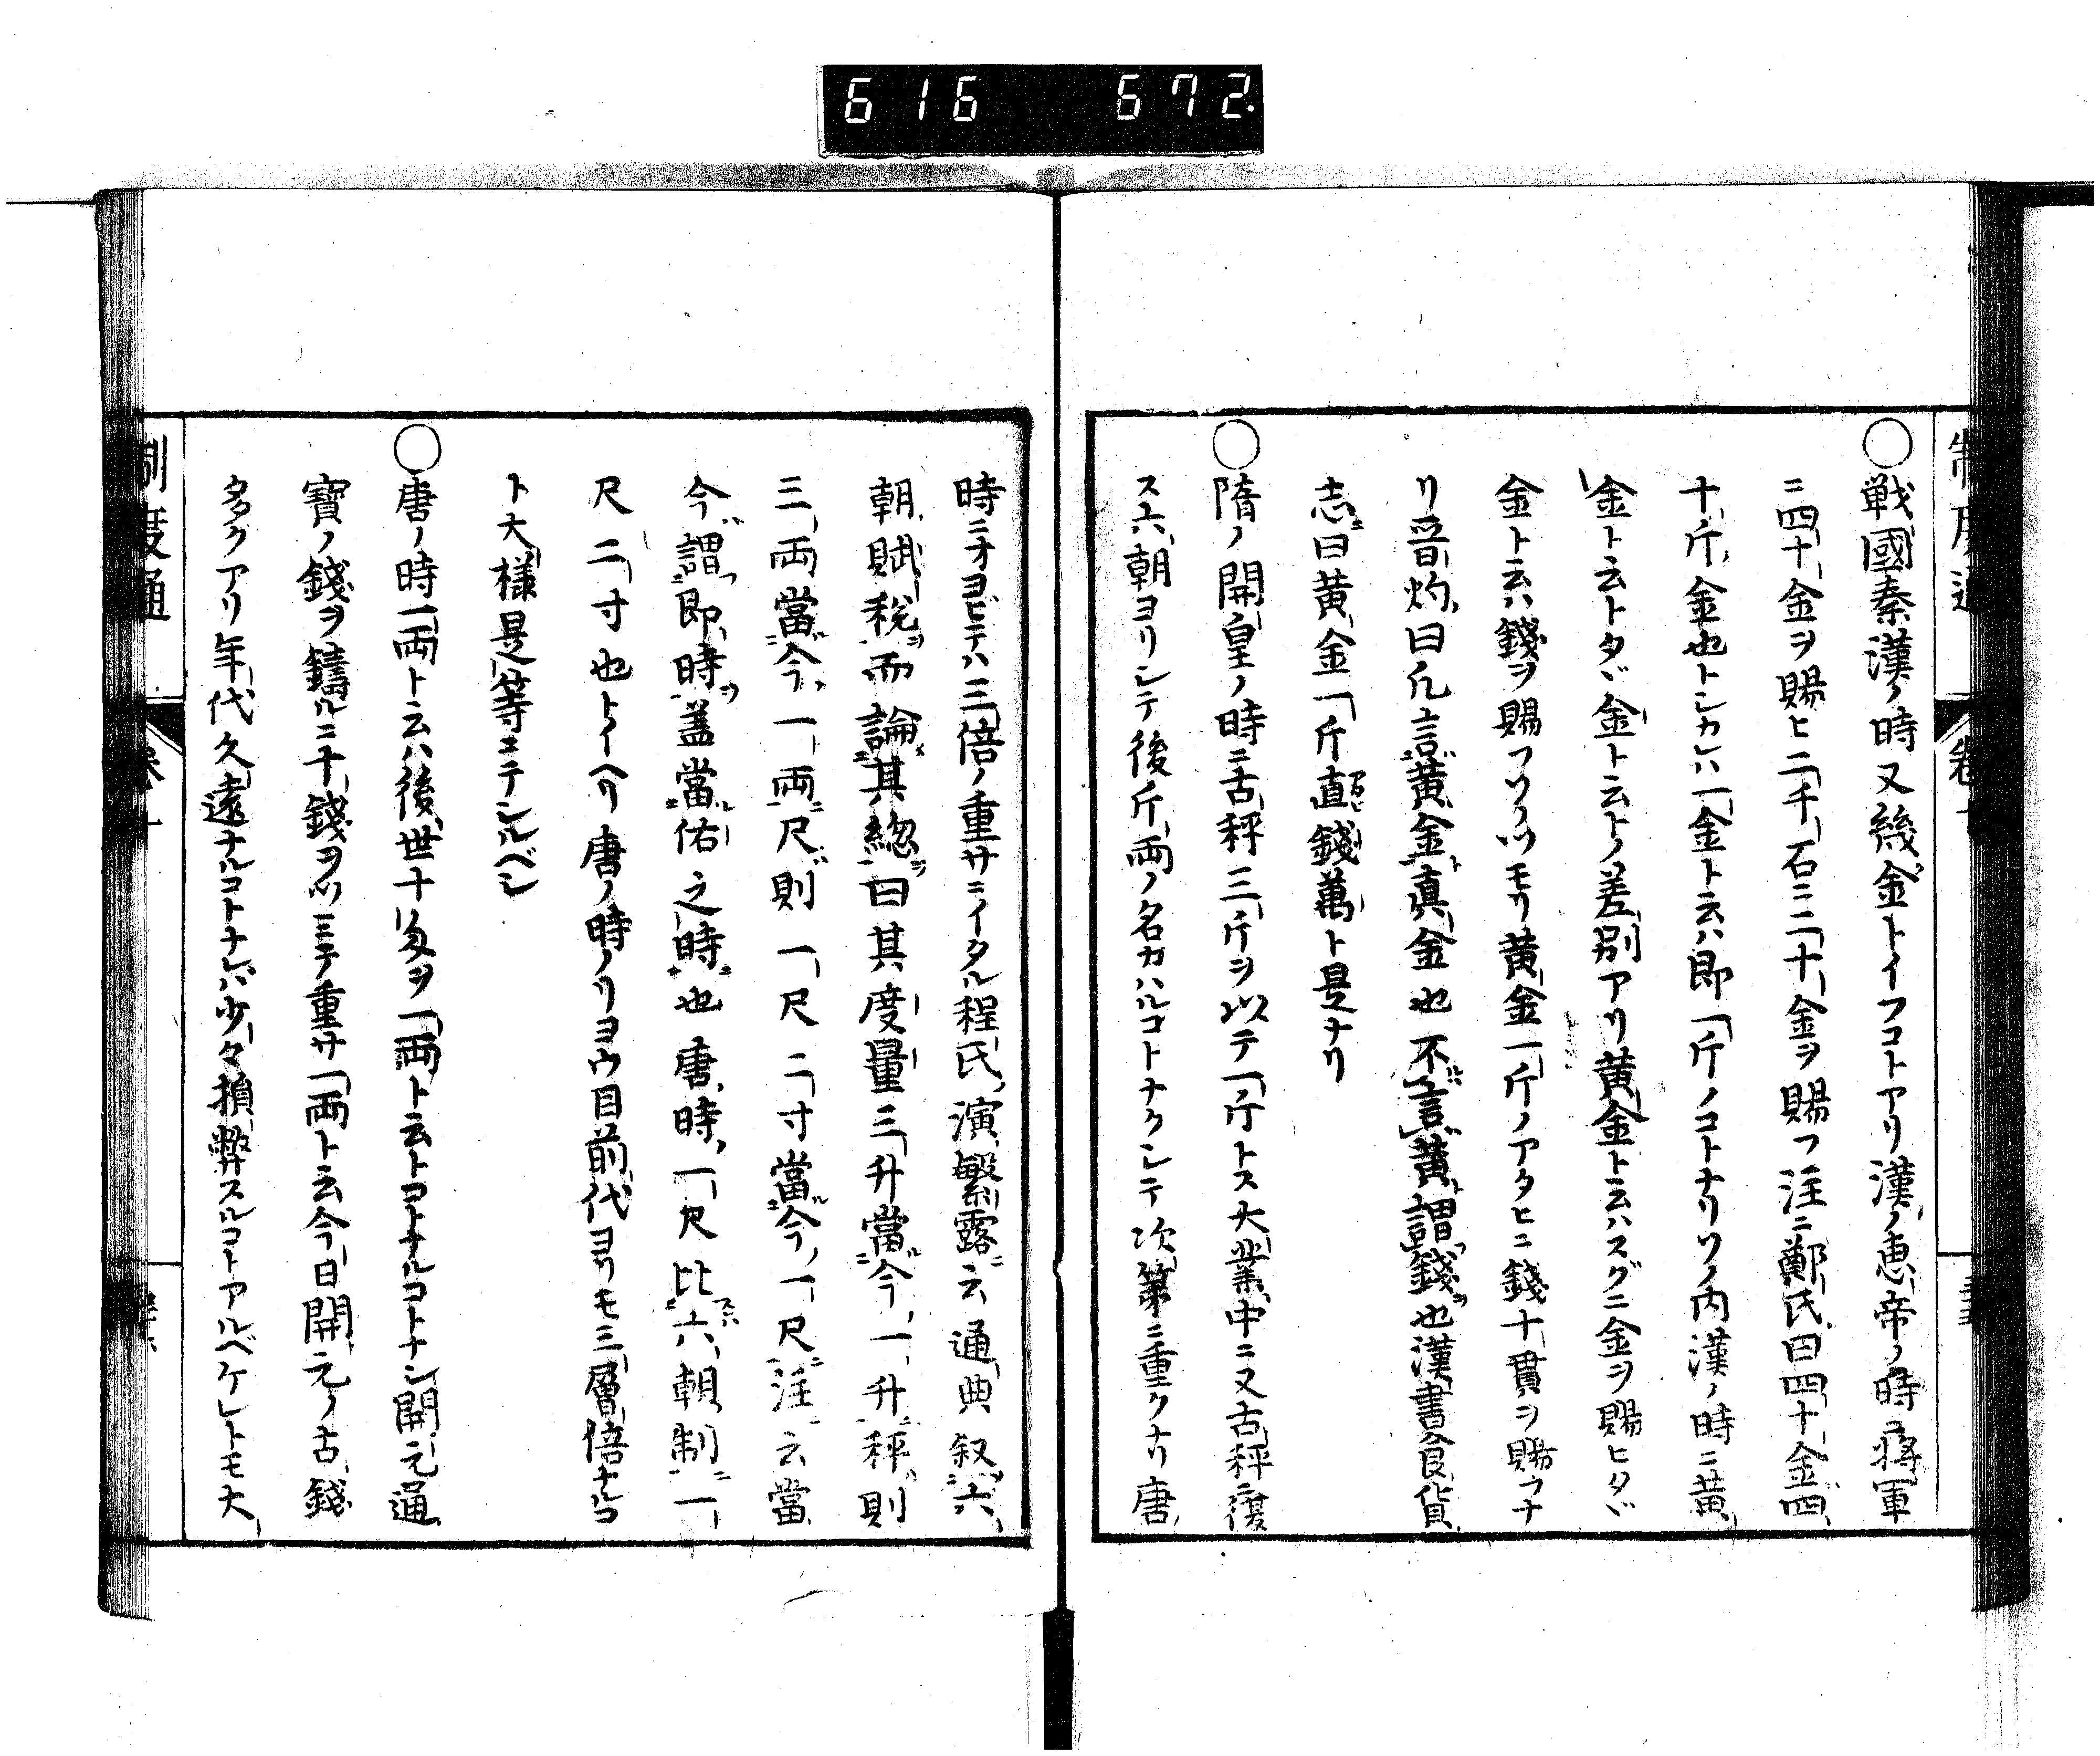 616 672
制度通 卷十
○戦國秦漢ノ時又幾金トイフコトアリ漢ノ惠帝ノ時將軍
ニ四十金ヲ賜ヒ二千石ニ二十金ヲ賜フ注ニ鄭氏曰四十金四
十斤金也トシカレハ一金ト云ハ即一斤ノコトナリソノ内漢ノ時ニ黄
金ト云トタヾ金ト云トノ差別アリ黄金ト云ハスグニ金ヲ賜ヒタヾ
金ト云ハ錢ヲ賜フソノツモリ黄金一斤ノアタヒニ錢十貫ヲ賜フナ
リ晋灼曰凡言黄金真金也不言黄謂錢也漢書食貨
志曰黄金一斤直錢萬ト是ナリ
○隋ノ開皇ノ時ニ古秤三斤ヲ以テ一斤トス大業中ニ又古秤ニ復
ス六朝ヨリシテ後斤両ノ名カハルコトナクシテ次第ニ重クナリ唐
時ニオヨビテハ三倍ノ重サニイタル程氏演繁露云通典叙六
朝賦税而論其総曰其度量三升當今一升秤則
三両當今一両尺則一尺二寸當今一尺注云當
今謂即時蓋當佑之時也唐時一尺比六朝制一
尺二寸也トイヘリ唐ノ時ノリヨウ目前代ヨリモ三層倍ナルコ
ト大様是等ニテシルベシ
○唐ノ時一両ト云ハ後世十匁ヲ一両ト云トコトナルコトナシ開元通
寳ノ錢ヲ鑄ルニ十錢ヲツミテ重サ一両ト云今日開元ノ古錢
多クアリ年代久遠ナルコトナレバ少々損弊スルコトアルベケレトモ大
制度通 卷十